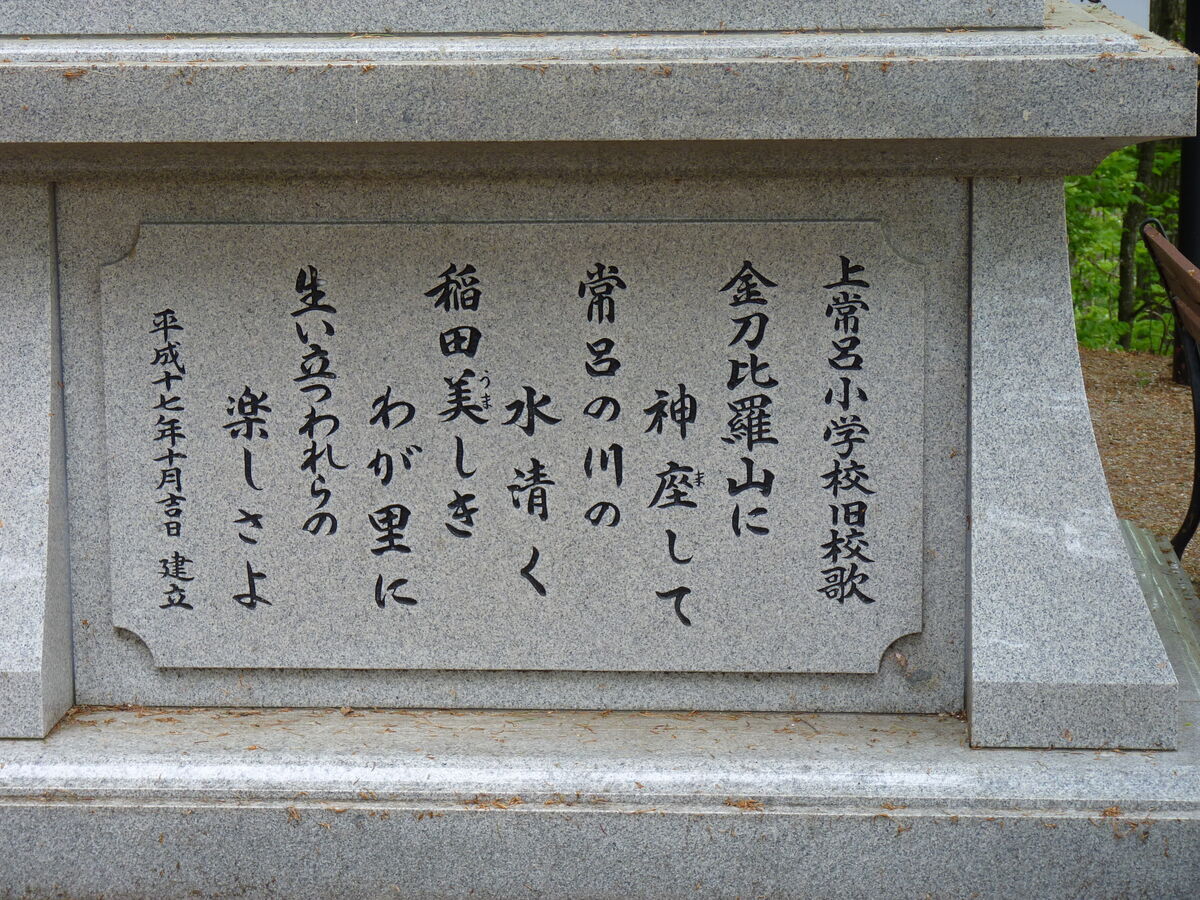 上常呂小学校旧校歌
金刀比羅山に
神座して
ま
常呂の川の
水清く
稲田美しき
うま
わが里に
生い立つわれらの
楽しさよ
平成十七年十月吉日 建立